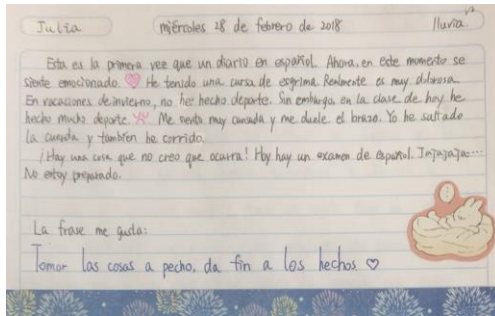 Julia miércoles 28 de febrero de 2018 lluvia
Esta es la primera vez que un diario en español. Ahora, en este momento se
siente emocionado. He tenido una cursa de esgrima. Realmente es muy dolorosa.
En vacaciones de invierno, no he hecho deporte. Sin embargo, en la clase de hoy he
hecho mucho deporte. Me siento muy cansada y me duele el brazo. Yo he saltado
la cuerda y también he corrido.
¡Hay una cosa que no creo que ocurra! Hoy hay un examen de español. Jajajaja...
No estoy preparado.
La frase me gusta:
Tomar las cosas a pecho, da fin a los hechos